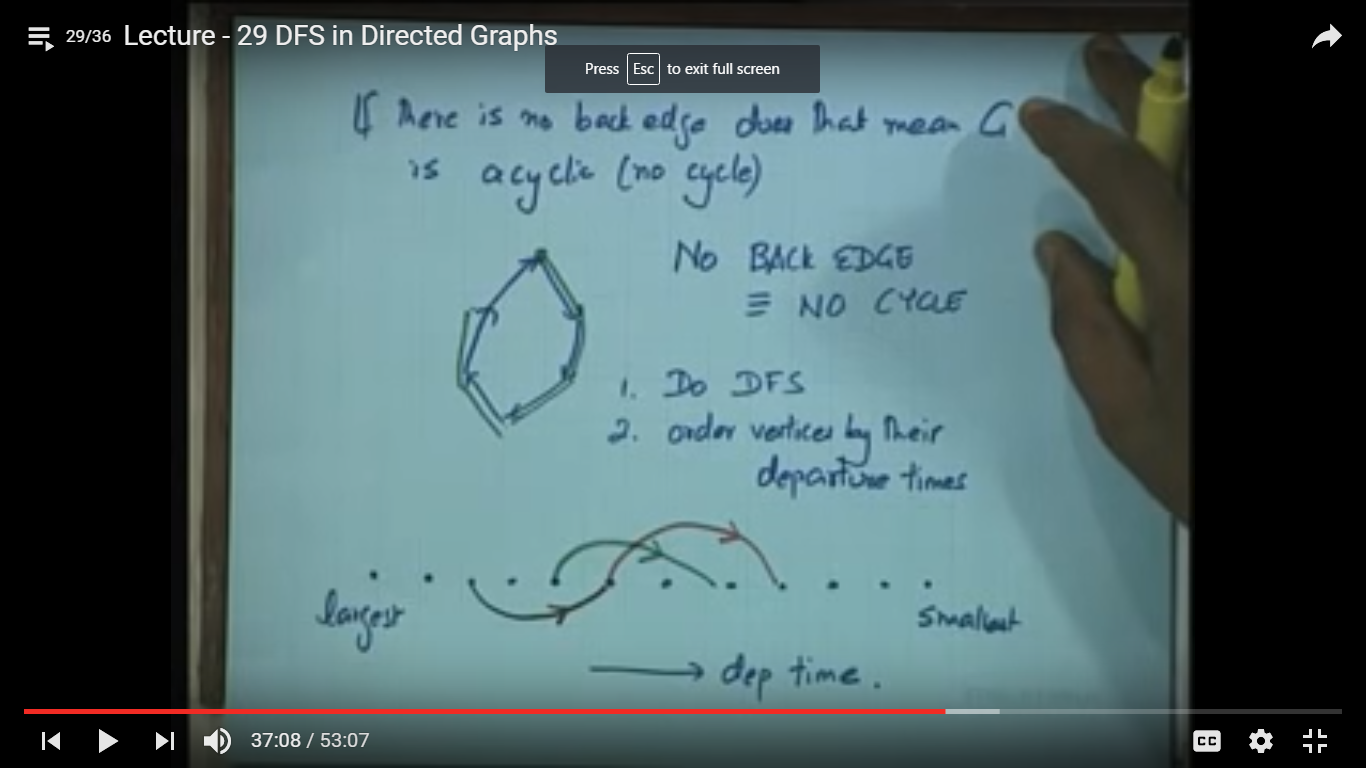 29/36 Lecture - 29 DFS in Directed Graphs
Press Esc to exit full screen
If there is no back edge does that mean G
is acyclic (no cycle)
NO BACK EDGE
≡ NO CYCLE
1. Do DFS
2. order vertices by their
departure times
largest
smallest
→ dep time.
37:08 / 53:07
CC